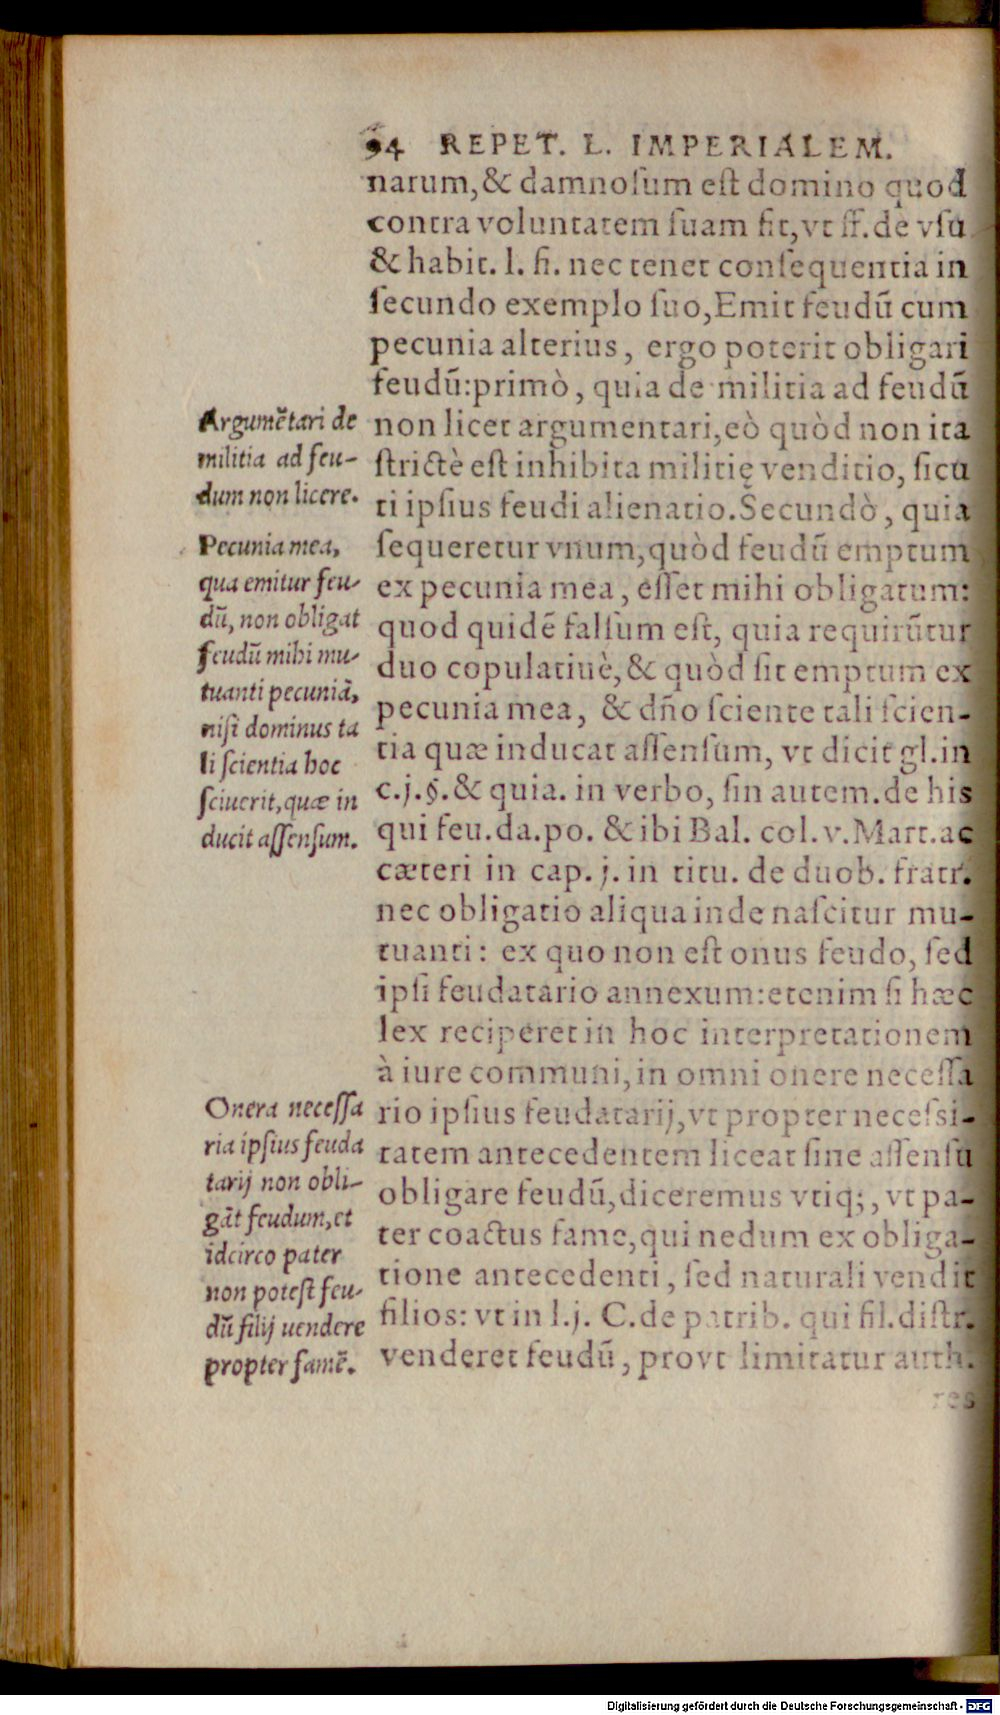 94 REPET. L. IMPERIALEM.
narum,& damnosum est domino quod
contra voluntatem suam fit,vt ff.de vsu
& habit. l. fi. nec tenet consequentia in
secundo exemplo suo,Emit feudū cum
pecunia alterius, ergo poterit obligari
feudū:primò, quia de militia ad feudū
non licet argumentari,eò quòd non ita
strictè est inhibita militię venditio, sicu
ti ipsius feudi alienatio.Secundò, quia
sequeretur vnum,quòd feudū emptum
ex pecunia mea, esset mihi obligatum:
quod quidē falsum est, quia requirūtur
duo copulatiuè,& quòd sit emptum ex
pecunia mea, & dño sciente tali scien-
tia quæ inducat assensum, vt dicit gl.in
c.j.§.& quia. in verbo, sin autem.de his
qui feu.da.po. & ibi Bal. col.v.Mart.ac
cæteri in cap. j. in titu. de duob. fratr.
nec obligatio aliqua inde nascitur mu-
tuanti: ex quo non est onus feudo, sed
ipsi feudatario annexum:etenim si hæc
lex reciperet in hoc interpretationem
à iure communi,in omni onere necessa
rio ipsius feudatarij,vt propter necessi-
tatem antecedentem liceat sine assensu
obligare feudū,diceremus vtiq;, vt pa-
ter coactus fame,qui nedum ex obliga-
tione antecedenti, sed naturali vendit
filios: vt in l.j. C.de patrib. qui fil.distr.
venderet feudū, provt limitatur auth.
res
Argumētari de
militia ad feu-
dum non licere.
Pecunia mea,
qua emitur feu-
dū, non obligat
feudū mihi mu-
tuanti pecuniā,
nisi dominus ta
li scientia hoc
sciuerit,quæ in
ducit assensum.
Onera necessa
ria ipsius feuda
tarij non obli-
gāt feudum,et
idcirco pater
non potest feu-
dū filij uendere
propter famē.
Digitalisierung gefördert durch die Deutsche Forschungsgemeinschaft - DFG